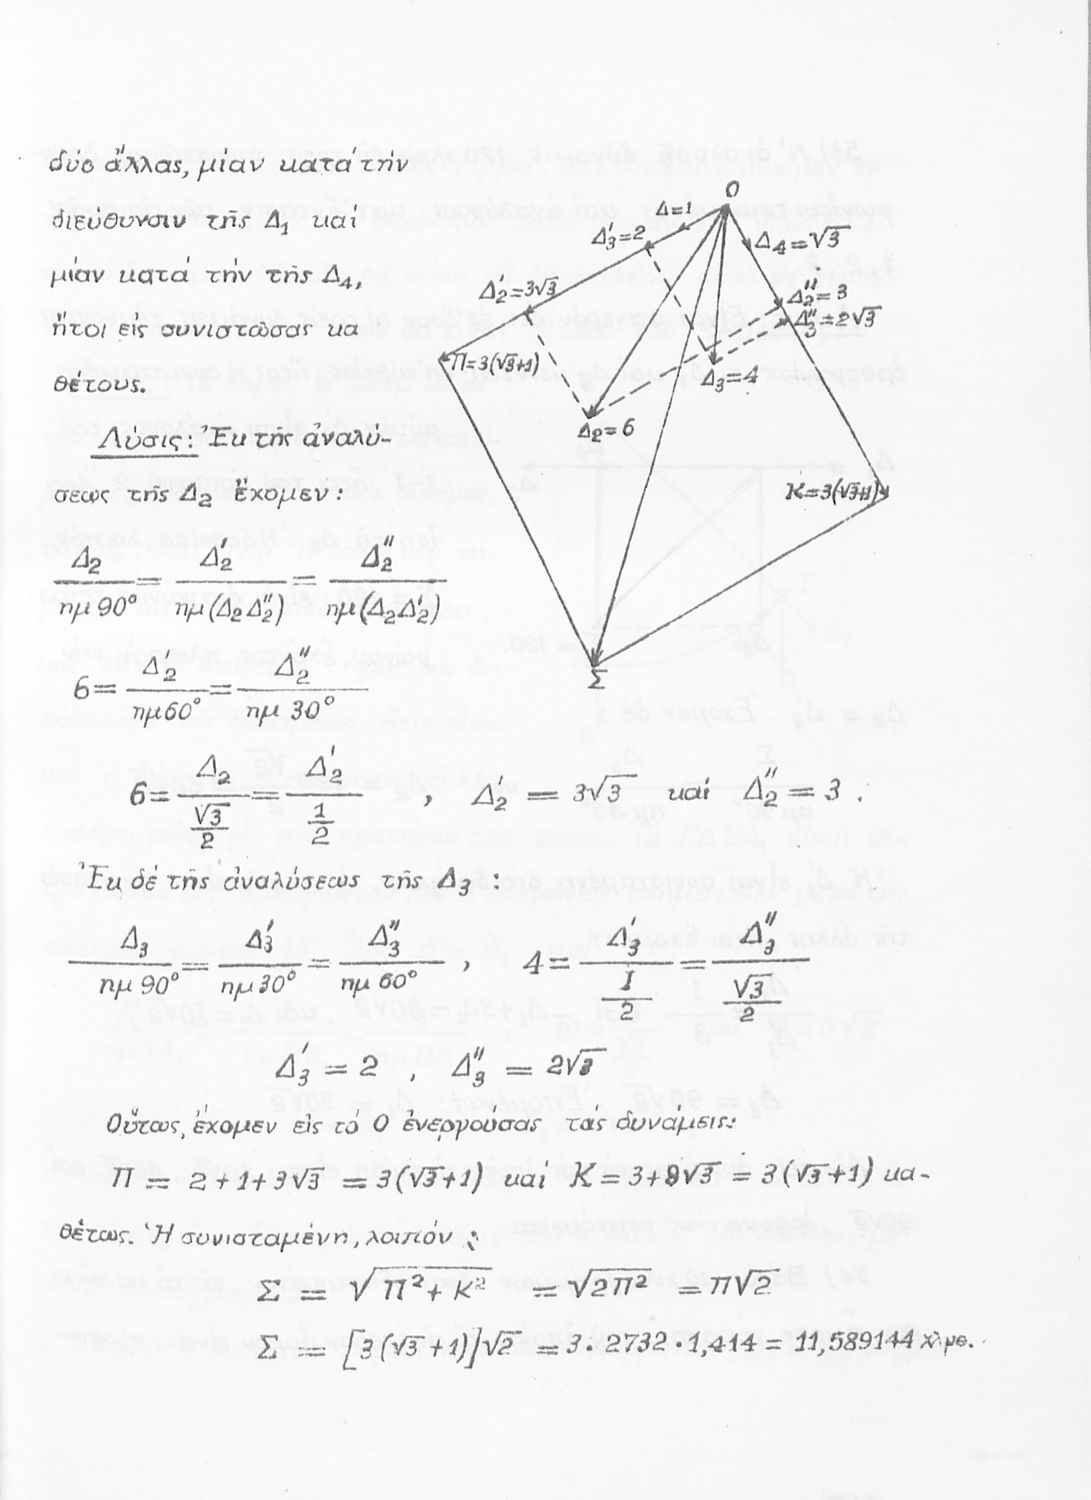 δύο ἄλλας, μίαν κατά τήν
διεύθυνσιν τῆς Δ₁ καί
μίαν κατά τήν τῆς Δ₄,
ἤτοι εἰς συνιστῶσας κα
θέτους.
O
Δ=1
Δ₃'=2
Δ₄=√3
Δ₂'=3√3
Δ₂''=3
Δ₃''=2√3
Π=3(√3+1)
Δ₃=4
Δ₂=6
Κ=3(√3+1)
Σ
Λύσις: Ἐκ τῆς ἀναλύ-
σεως τῆς Δ₂ ἔχομεν:
Δ₂/ημ 90° = Δ₂'/ημ(Δ₂Δ₂'') = Δ₂''/ημ(Δ₂Δ₂')
6 = Δ₂'/ημ60° = Δ₂''/ημ 30°
6 = Δ₂/(√3/2) = Δ₂'/(1/2) , Δ₂' = 3√3 καί Δ₂'' = 3 .
Ἐκ δέ τῆς ἀναλύσεως τῆς Δ₃ :
Δ₃/ημ 90° = Δ₃'/ημ 30° = Δ₃''/ημ 60° , 4 = Δ₃'/(1/2) = Δ₃''/(√3/2)
Δ₃' = 2 , Δ₃'' = 2√3
Οὕτως, ἔχομεν εἰς τό Ο ἐνεργούσας τάς δυνάμεις:
Π = 2+1+3√3 = 3(√3+1) καί Κ = 3+3√3 = 3(√3+1) κα-
θέτως. Ἡ συνισταμένη, λοιπόν :
Σ = √(Π²+Κ²) = √(2Π²) = Π√2
Σ = [3(√3+1)]√2 = 3·2732·1,414 = 11,589144 χλμε.